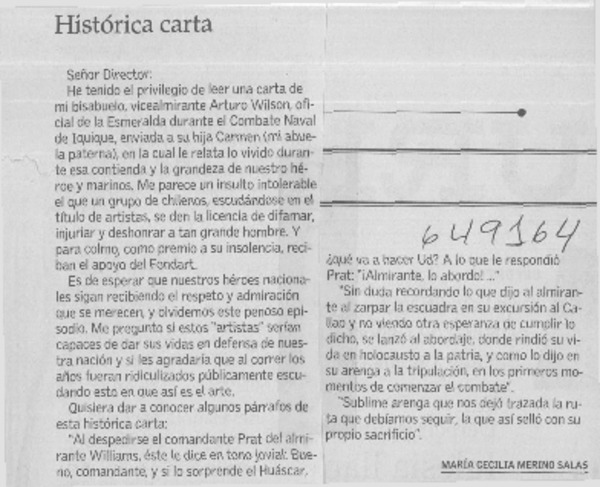 Histórica carta
Señor Director:
He tenido el privilegio de leer una carta de
mi bisabuelo, vicealmirante Arturo Wilson, ofi-
cial de la Esmeralda durante el Combate Naval
de Iquique, enviada a su hija Carmen (mi abue-
la paterna), en la cual le relata lo vivido duran-
te esa contienda y la grandeza de nuestro hé-
roe y marinos. Me parece un insulto intolerable
el que un grupo de chilenos, escudándose en el
título de artistas, se den la licencia de difamar,
injuriar y deshonrar a tan grande hombre. Y
para colmo, como premio a su insolencia, reci-
ban el apoyo del Fondart.
Es de esperar que nuestros héroes naciona-
les sigan recibiendo el respeto y admiración
que se merecen, y olvidemos este penoso epi-
sodio. Me pregunto si estos "artistas" serían
capaces de dar sus vidas en defensa de nues-
tra nación y si les agradaría que al correr los
años fueran ridiculizados públicamente escu-
dando esto en que así es el arte.
Quisiera dar a conocer algunos párrafos de
esta histórica carta:
"Al despedirse el comandante Prat del almi-
rante Williams, éste le dice en tono jovial: Bue-
no, comandante, y si lo sorprende el Huáscar,
649164
¿qué va a hacer Ud? A lo que le respondió
Prat: "¡Almirante, lo abordo!..."
"Sin duda recordando lo que dijo al almiran-
te al zarpar la escuadra en su excursión al Ca-
llao y no viendo otra esperanza de cumplir lo
dicho, se lanzó al abordaje, donde rindió su vi-
da en holocausto a la patria, y como lo dijo en
su arenga a la tripulación, en los primeros mo-
mentos de comenzar el combate".
"Sublime arenga que nos dejó trazada la ru-
ta que debíamos seguir, la que así selló con su
propio sacrificio".
MARÍA CECILIA MERINO SALAS